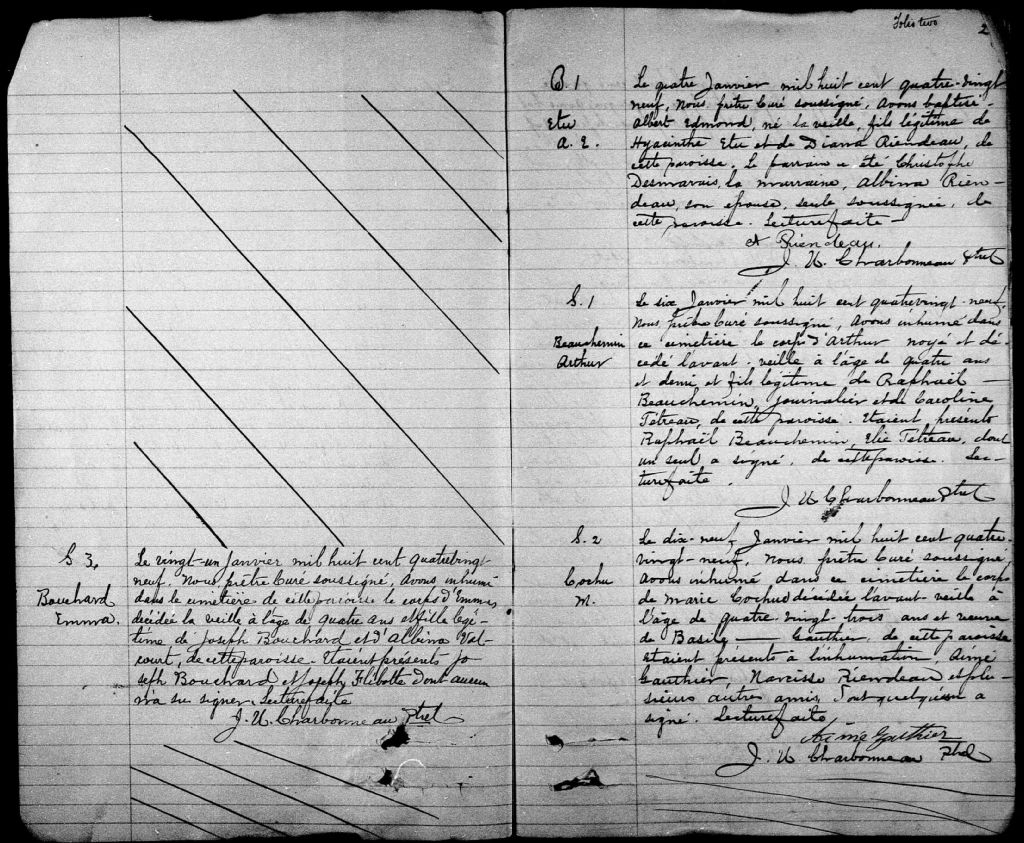 S 3,
Bouchard
Emma.
Le vingt-un Janvier mil huit cent quatrevingt
neuf, Nous prêtre Curé soussigné, avons inhumé
dans le cimetière de cette paroisse le corps d'Emma
décédée la veille à l'âge de quatre ans et fille légi-
time de Joseph Bouchard et d'Albina Val-
court, de cette paroisse. Etaient présents Jo
seph Bouchard et Joseph Flibotte dont aucun
n'a su signer. Lecture faite
J. U. Charbonneau Ptre
Folio two
2
B. 1
Etu
A. E.
Le quatre Janvier mil huit cent quatre-vingt
neuf, Nous prêtre Curé soussigné, avons baptisé
Albert Edmond, né la veille, fils légitime de
Hyacinthe Etu et de Diana Riendeau, de
cette paroisse. Le parrain a été Christophe
Desmarais, la marraine, Albina Rien-
deau, son épouse, seule soussignée, de
cette paroisse. Lecture faite
A Riendeau.
J. U. Charbonneau Ptre
S. 1
Beauchemin
Arthur
Le six Janvier mil huit cent quatrevingt-neuf,
Nous prêtre Curé soussigné, avons inhumé dans
ce cimetière le corps d'Arthur noyé et dé-
cédé l'avant-veille à l'âge de quatre ans
et demi et fils légitime de Raphaël
Beauchemin, journalier et de Caroline
Tétreau, de cette paroisse. Etaient présents
Raphaël Beauchemin, Elie Tetreau, dont
un seul a signé, de cette paroisse. Lec-
ture faite.
J. U Charbonneau Ptre
S. 2
Cochu
M.
Le dix-neuf Janvier mil huit cent quatre-
vingt-neuf, Nous prêtre Curé soussigné,
avons inhumé dans ce cimetière le corps
de Marie Cochu décédée l'avant-veille à
l'âge de quatre-vingt-trois ans et veuve
de Basile Gauthier de cette paroisse
Etaient présents à l'inhumation, Aimé
Gauthier, Narcisse Riendeau et plu-
sieurs autres amis dont quelques un a
signé. Lecture faite,
Aimé Gauthier
J. U Charbonneau Ptre